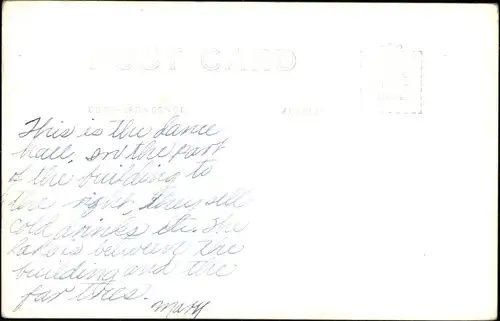 POST CARD
CORRESPONDENCE ADDRESS
This is the dance
hall, on the part
of the building to
the right, they sell
cold drinks etc. The
lake is between the
building and the
far trees.
Mary